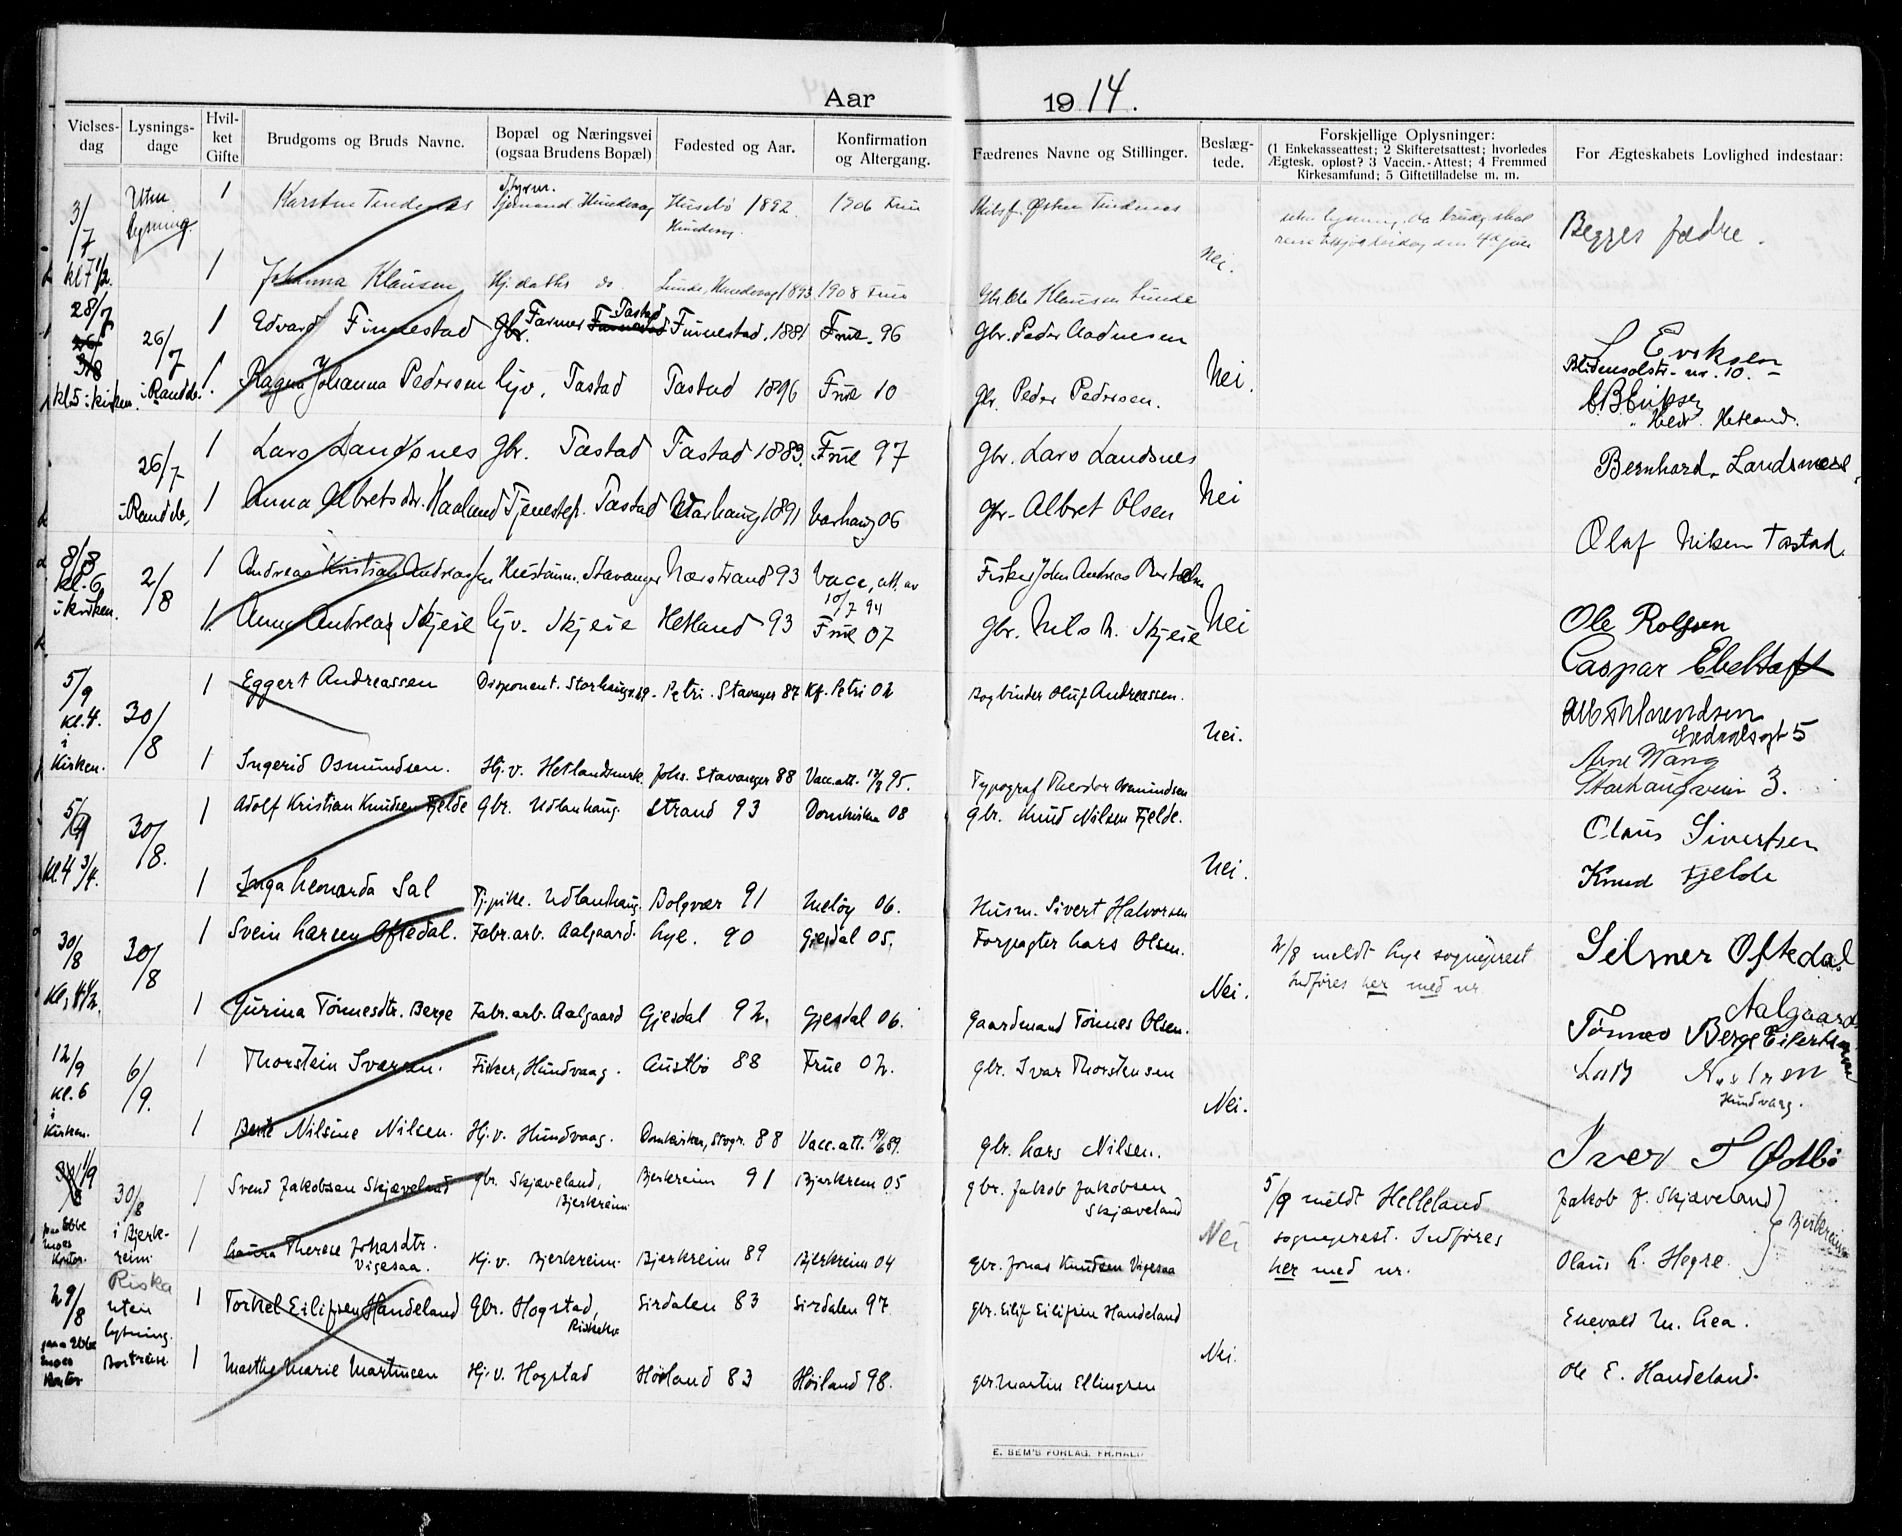 Aar 1914.
Vielses-dag
Lysnings-dage
Hvil-ket Gifte
Brudgoms og Bruds Navne.
Bopæl og Næringsvei (ogsaa Brudens Bopæl)
Fødested og Aar.
Konfirmation og Altergang.
Fædrenes Navne og Stillinger.
Beslæg-tede.
Forskjellige Oplysninger: (1 Enkekasseattest; 2 Skifteretsattest; hvorledes Ægtesk. opløst? 3 Vaccin.-Attest; 4 Fremmed Kirkesamfund; 5 Giftetilladelse m. m.
For Ægteskabets Lovlighed indestaar:
3/7 Uten lysning 1 Karsten Tendenes Styrm. Sjømand Hundvaag Husebø 1892 Hundvog. 1906 Frue Skibsf. Østen Tendenes Begges fædre.
kl 7 1/2. 1 Johanna Klausen Hj. datter do. Lunde, Hundvag 1893 1908 Frue Gbr. Ole Klausen Lunde Nei.
28/7 26/7 1 Edvard Finnestad Gbr. Farmer Tastad Finnestad. 1881 Frue. 96 Gbr. Peder Aadnesen L Eriksen
kl 5 i kirken. i Randb. 1. Ragna Johanna Pedersen Hjv. Tastad Tastad 1896 Frue 10 Gbr. Peder Pedersen. Nei. nr. 10. Hetland.
26/7 1 Lars Landsnes Gbr. Tastad Tastad 1883. Frue 97 Gbr. Lars Landsnes Bernhard. Landsnes
i Randb, 1 Anna Albretsdtr. Haaland Tjenestep. Tastad Varhaug 1891 Varhaug 06 Gbr. Albret Olsen Nei Olaf Nilsen Tastad.
8/8 kl. 6 2/8 1 Andreas Kristian Andreassen Stavanger Nærstrand 93 Vacc. att. av 10/7 94 Fisker John Andreas Ole Rolfsen
i kirken. 1. Anna Andrea Skjeie Hjv. Skjeie Hetland 93 Frue 07 Gbr. Nils N. Skjeie Nei Caspar Ebeltoft
5/9 kl. 4. 30/8 1 Eggert Andreassen Disponent. Storhaugv. 29. Petri. Stavanger 87 Kf. Petri 02 Bogbinder Oluf Andreassen.
i Kirken. 1 Ingerid Osmundsen. Hj.v. Hetlandsmrk. Joh. Stavanger 88 Vacc. att. 95. Typograf Theodor Osmundsen Nei. Arne Wang Storhaugveien 3.
5/9 30/8. 1 Adolf Kristian Knudsen Fjelde Gbr. Udlanhaug. Strand 93 Domkirken 08 Gbr. Knud Nilsen Fjelde. Olaus Sivertsen
Kl. 4 3/4. 1 Inga Leonarda Sal Tj.pike. Udlanhaug. Bolgvær 91 Meløy 06. Husm. Sivert Halvorsen Nei. Knud Fjelde
30/8 30/8 1 Svein Larsen Oftedal. Fabr. arb. Aalgaard. Lye. 90 Gjesdal 05. Forpagter Lars Olsen. 2/8 meldt Lye sogneprest Selmer Oftedal
Kl, 4 1/2. 1 Jurina Tønnesdtr. Berge Fabr. arb. Aalgaard Gjesdal 92. Gjesdal 06. Gaardmand Tønnes Olsen. Nei. Indføres her med nr. Aalgaard Tønnes Berge
12/9 Kl. 6 6/9. 1 Thorstein Ivarsen. Fisker, Hundvaag. Austbø 88 Frue 02. Gbr. Ivar Thorstensen Hundvaag.
i Kirken. 1 Berte Nilsine Nilsen. Hj.v. Hundvaag. Domkirken, Stvgr. 88 Vacc. att. 19/6 89. Gbr. Lars Nilsen. Nei. Iver T Østbø
1/9 30/8 1 Svend Jakobsen Skjæveland Gbr. Skjæveland, Bjerkreim Bjerkreim 91 Bjerkreim 05 Gbr. Jakob Jakobsen Skjæveland 5/9 meldt Helleland Jakob J. Skjæveland
paa Ebbe Moes Kontor. i Bjerk-reim 1 Laura Therese Jonasdtr. Vigesaa. Hj.v. Bjerkreim. Bjerkreim 89 Bjerkreim 04 Gbr. Jonas Knudsen Vigesaa Nei sogneprest. Indføres her med nr. Olaus L. Hegre. Bjerkreim
29/8 Riska uten lysning. 1 Torkel Eilifsen Handeland Gbr. Hogstad, Sirdalen 83 Sirdalen 97. Gbr. Eilif Eilifsen Handeland Enevald M. Lea.
paa Ebbe Moes Kontor Bortreise. 1 Marthe Marie Martinsen Hj.v. Hogstad Høiland 83 Høiland 98. Gbr. Martin Ellingsen Nei. Ole E. Handeland.
E. SEM'S FORLAG, FR.HALD